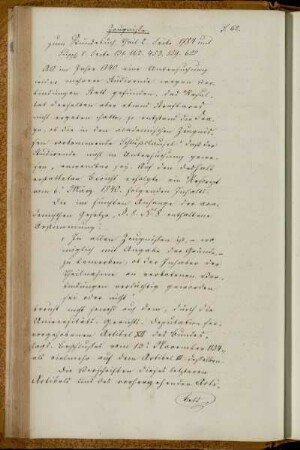 Zeugnisse
§ 62.
zum Stundebuch Theil 2. Seite 1884 und
Suppl. 2. Seite 138. 162. 453. 529. 621
Als im Jahre 1840 eine Untersuchung
wider mehrere Studirende wegen Ver-
bindungen Statt gefunden, das Resul-
tat derselben aber etwas Strafbares
nicht ergeben hatte, so entstand die Fra-
ge, ob die in den academischen Zeugnis-
sen vorkommende Schlußclausel: daß der
Studirende nicht in Untersuchung gewe-
sen, anwendbar sei. Auf den deshalb
erstatteten Bericht erfolgte ein Rescript
vom 6. März 1840. folgenden Inhalts:
Die im fünften Anhange der aca-
demischen Gesetze, enthaltene
Bestimmung:
"In allen Zeugnissen ist, – wo
möglich mit Angabe der Gründe, –
zu bemerken, ob der Inhaber der
Theilnahme an verbotenen Ver-
bindungen verdächtig geworden
sei oder nicht"
beruht nicht sowohl auf dem, durch die
Universitäts-Gerichts-Deputation her-
vorgehobenen Artikel XII des Bundes-
tags-Beschlusses vom 13. November 1834,
als vielmehr auf dem Artikel III. desselben.
Die Vorschriften dieses letzteren
Artikels und des vorhergehenden Arti-
kels